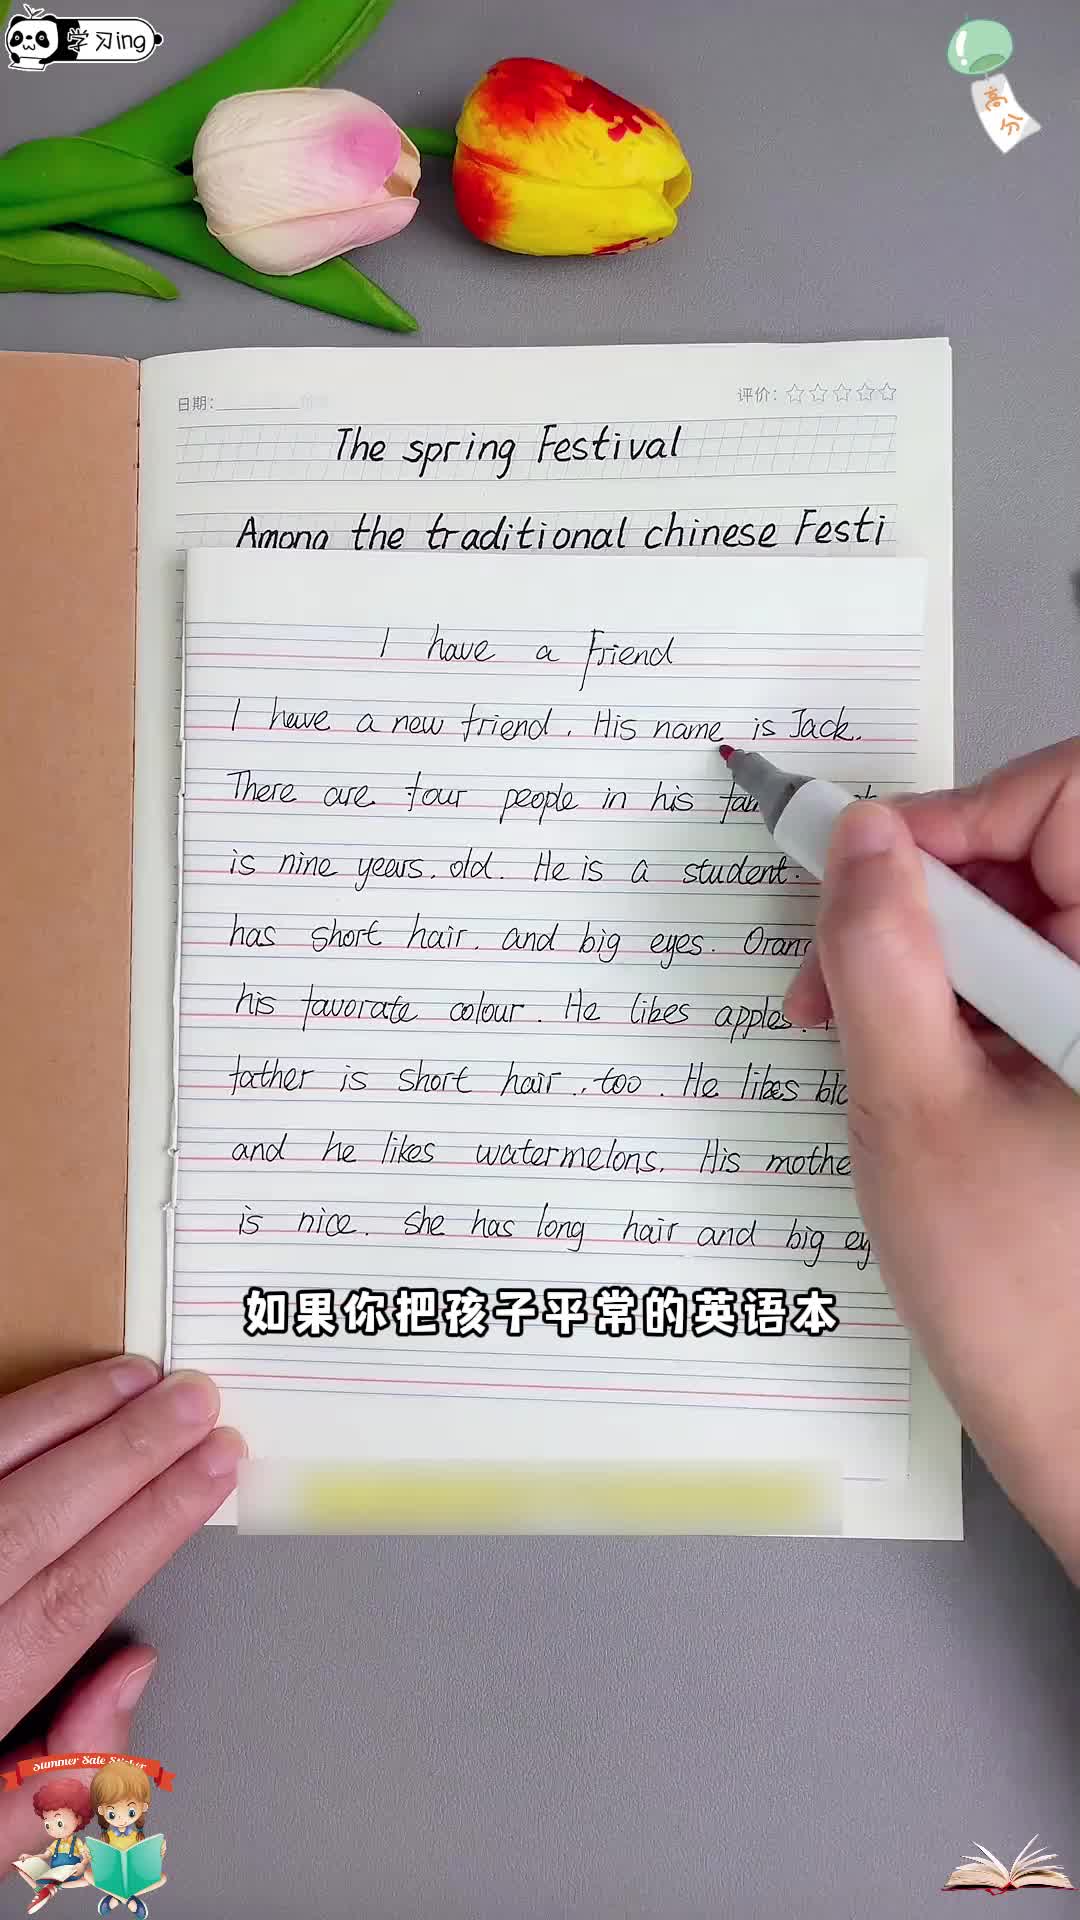 学习ing
高分
日期:
评价:
The spring Festival
Among the traditional chinese Festi
I have a Friend
I have a new friend. His name is Jack.
There are four people in his
is nine years. old. He is a student.
has short hair. and big eyes.
his favorate colour. He likes apples.
father is short hair., too. He likes
and he likes watermelons. His
is nice. She has long hair and big
如果你把孩子平常的英语本
Summer Sale Sticker